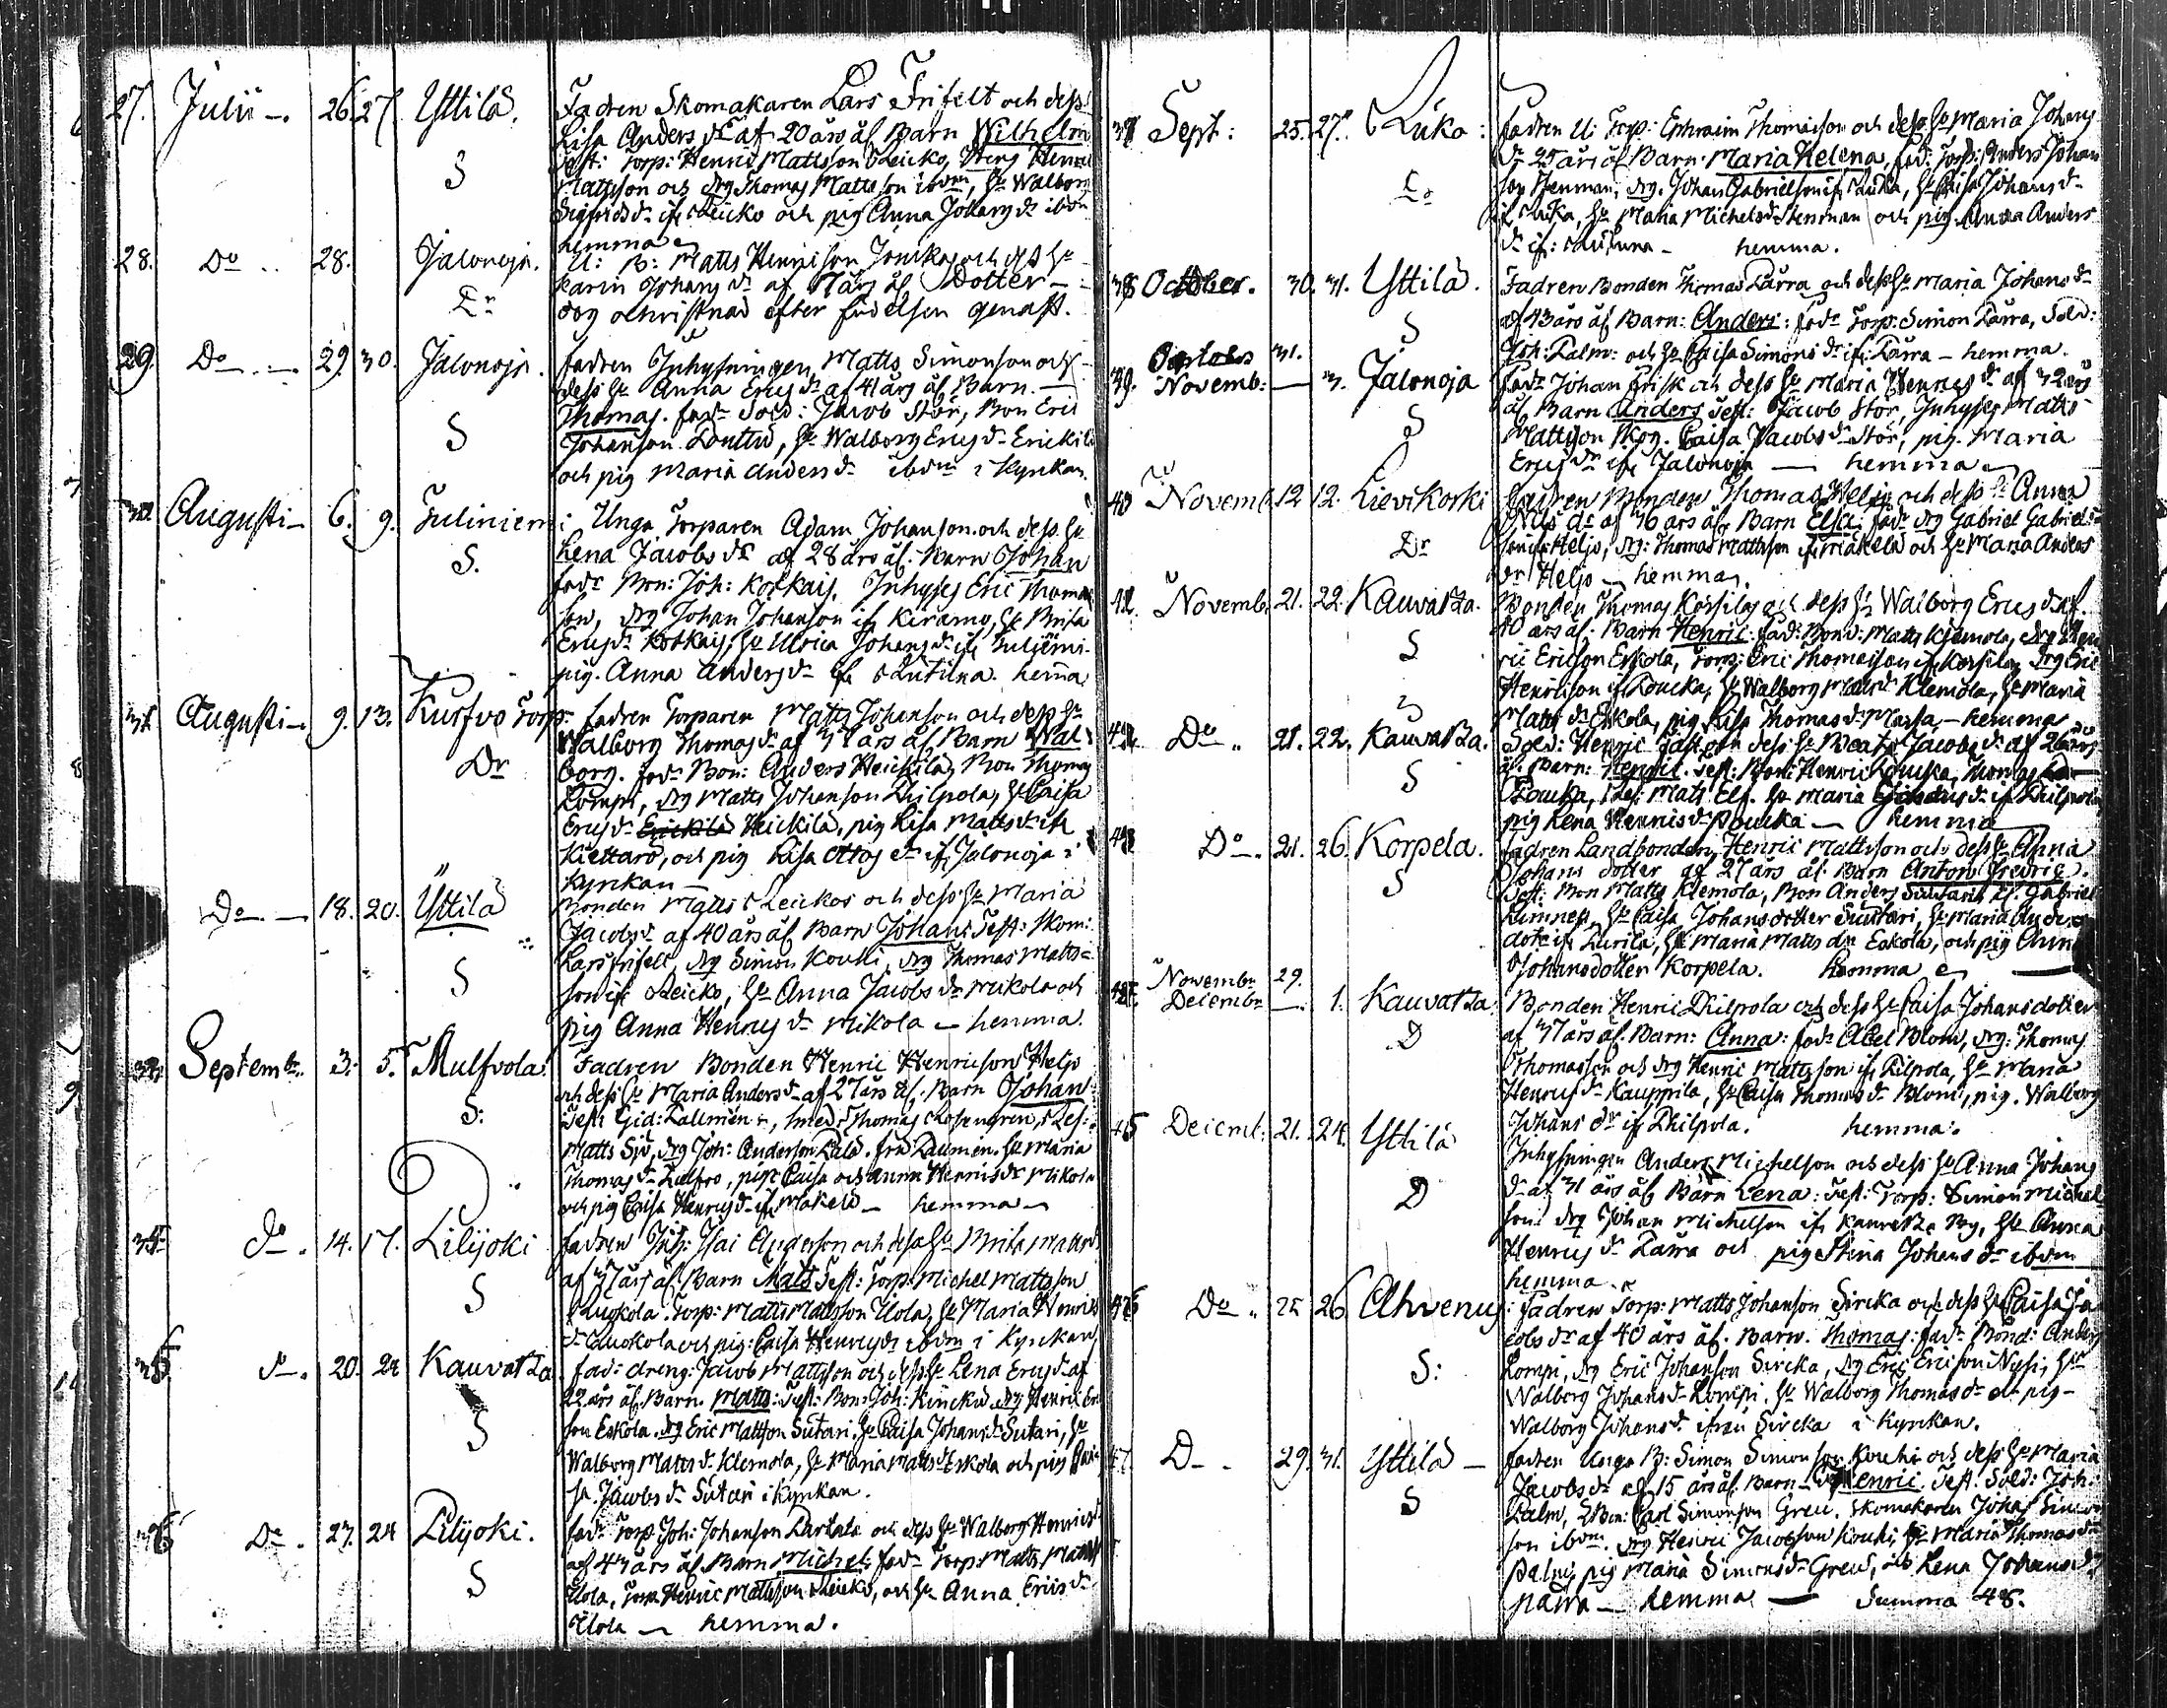 27. Julii 26. 27. Yttilä.
Fadren Skomakaren Lars Frifelt och dess
Lisa Anders dr af 20 års ål. Barn Wilhelm
S
Test: Torp: Henric Mattsson Reicko,
Mattsson och drg Thomas Mattsson ibdm, H. Walborg
Sigfrids dr if. Reicko och pig Anna Johans dr ibdm
hemma
28. Do 28. Jalonoja.
U: B: Matts Henricson Jonika och dess H.
Karin Johans dr af års ål Dotter
Dr
dog ochristnad efter födelsen genast.
29. Do 29. 30. Jalonoja.
fadren Inhysningen Matts Simonson och
dess H. Anna Erics dr af 41 års ål Barn
Thomas. fadr Sold: Jacob Stör, Bon Eric
S
Johanson Lonttu, H. Walborg Erics dr Erickilä
och pig Maria Anders dr ibdm i Kyrkan.
30. Augusti 6. 9. Juliniemi
Unga Torparen Adam Johanson och dess H.
Lena Jacobs dr af 28 års ål. Barn Johan
S.
fadr Bon: Joh: Korkais, Inhyses Eric Thomas
son, drg Johan Johanson if. Keramo, H. Brita
Erics dr Korkais, H. Ulrica Johans dr if. Juliemi
pig. Anna Anders dr if. hemma
31. Augusti 9. 13. Kurfvo Torp.
fadren Torparen Matts Johanson och dess H.
Walborg Thomas dr af 37 års ål Barn Wal
borg. fadr Bon: Anders Heickilä, Bon Thomas
Dr
Lompi, drg Matts Johanson Kilpola, H. Caisa
Erics dr Heickilä, pig Lisa Matts dr if.
Kiettarö, och pig Lisa Ottos dr if. Jalonoja i
Kyrkan
Do 18. 20. Yttilä
Bonden Matts Reickos och dess H. Maria
Jacobs dr af 40 års ål Barn Johan: Test: Skom:
Lars Frifelt, drg Simon Kouhi, drg Thomas Matts
S
son if. Reicko, H. Anna Jacobs dr Mikola och
pig Anna Henrics dr Mikola hemma.
Septemb. 3. 5. Mulfvola
Fadren Bonden Henric Henricson Heljo
och dess H. Maria Anders dr af 27 års ål. Barn Johan
S:
Test: Gid: Lallmén, Smed: Thomas Rosengren, Res:
Matts Sjö, drg Joh: Anderson från H. Maria
Thomas dr, pig Caisa och Anna Henrics dr Mikola
och pig Caisa Henrics dr if. Mäkelä hemma
do 14. 17. Lilijoki
fadren Inh: Isai Anderson och dess H. Brita Matts dr
af 37 års ål. Barn Mats Test: Torp: Michel Mattsson
S
Ruokola. Torp: Matts Mattsson Ylola, H. Maria Henrics
dr Ruokola och pig: Caisa Henrics dr ibdm i Kyrckan
35 do 20. 24 Kauvatza
fad: dreng: Jacob Mattsson och dess H. Lena Erics dr af
22 års ål. Barn. Matts: Test: Bon: Joh: drg Henric
S
son Eskola. drg Eric Mattsson Sutari. H. Caisa Johans dr Sutari, H.
Walborg Matts dr Klemola, H. Maria Matts dr Eskola och pig
sa. Jacobs dr Sutari i Kyrkan.
36 Do 27. 24 Lilijoki.
fadr Torp. Joh: Johanson och dess H. Walborg Henrics
af 43 års ål Barn Michel. fadr Torp: Matts Mattss
S
Ylola, Torp. Henric Mattsson Reicko, och H. Anna Erics dr
Ylola hemma.
37 Sept: 25. 27. Luka:
fadren U: Torp: Ephraim Thomasson och dess H. Maria Johans
dr 25 års ål Barn: Maria Helena, fad: Torp: Anders Johan
son Stenman, drg. Johan Gabrielson if. Luka, H. Caisa Johans dr
if Luka, H. Maria Michels dr Stenman och pig Anna Anders
dr if: hemma.
38 October. 30. 31. Yttilä.
Fadren Bonden Thomas Larra och dess H. Maria Johans dr
af 43 års ål Barn: Anders: fadr Torp: Simon Larra, Sold:
S
Joh: Palm: och H. Caisa Simons dr if. Larra hemma.
39. Octobr 31. Novemb: 3. Jalonoja
fadr Johan Frisk och dess H. Maria Henrics dr af 32 års
ål Barn Anders Test: Jacob Stör, Inhyses Matts
S
Mattsson Skog. Caisa Jacobs dr Stör, pig Maria
Erics dr if. Jalonoja hemma
40 Novemb. 12 12. Lievikoski
fadren Bonden Thomas Heljo och dess H. Anna
Nils dr af 36 års ål. Barn Elsa: fadr drg Gabriel Gabriel
Dr
son if. Heljo, drg: Thomas Mattsson if. Mäkelä och H. Maria Anders
dr Heljo hemma.
Novemb. 21. 22. Kauvatza.
Bonden Thomas Korsilas och dess H. Walborg Erics dr af
40 års ål. Barn Henric: fad: Bon: Matts Klemola, drg Hen
S
ric Ericson Eskola, Torp: Eric Thomasson if. Korsila, drg Eric
Henricson if. Poucka, H. Walborg Matts dr Klemola, H. Maria
Matts dr Eskola, pig Lisa Thomas dr hemma
Do 21. 22. Kauvatza.
Sold: Henric och dess H. Beata Jacobs dr af 26 års
ål. Barn: Henric. Test: Bon: Henric Poucka, Thomas
S
Poucka, Res: Matts Elf. H. Maria dr if. Kilpola
pig Lena Henrics dr Poucka hemma
Do 21. 26. Korpela.
fadren Landbonden Henric Mattsson och dess H. Anna
Johans dotter af 27 års ål. Barn Anton Fredric.
S
Test: Bon Matts Klemola, Bon Anders Suutari, if. Gabriel
H. Caisa Johans dotter Suutari, H. Maria Anders
dotr if. Lurila, H. Maria Matts dr Eskola, och pig Anna
Johansdotter Korpela. hemma
Novembr 29. Decembr 1. Kauvatza
Bonden Henric Kilpola och dess H. Caisa Johansdotter
af 37 års ål. Barn: Anna: fadr Abel Blom, drg: Thomas
D
Thomasson och drg Henric Mattsson if. Kilpola, H. Maria
Henrics dr Kauppila, H. Caisa Thomas dr Blom, pig. Walborg
Johans dr if Kilpola. hemma.
45 Decemb. 21. 24. Yttilä
Inhysningen Anders Michelson och dess H. Anna Johans
dr af 31 års ål Barn Lena: Test: Torp: Simon Michel
D
son drg Johan Michelson if. Kauvatza By, H. Anna
Henrics dr Larra och pig Stina Johans dr ibdm
hemma.
46 Do 25 26 Ahvenus
Fadren Torp: Matts Johanson Sircka och dess H. Caisa Ja
cobs dr af 40 års ål. Barn. Thomas: fadr Bond: Anders
S:
Lompi, drg Eric Johanson Sircka, drg Eric Ericson Nysi, H.
Walborg Johans dr Lompi. H. Walborg Thomas dr pig
Walborg Johans dr ifrån Sircka i Kyrkan.
47 D 29. 31. Yttilä
fadren Unga B: Simon Simonson Kouhi och dess H. Maria
Jacobs dr af 15 års ål. Barn Henric Test. Sold: Joh:
S
Palm, Bon: Carl Simonson Greu. Skomakaren Johan Simon
son ibdm. drg Henric Jacobson Kouhi, H. Maria Thomas dr
Palm, pig Maria Simons dr Greu, och Lena Johans dr
hemma Summa 48.